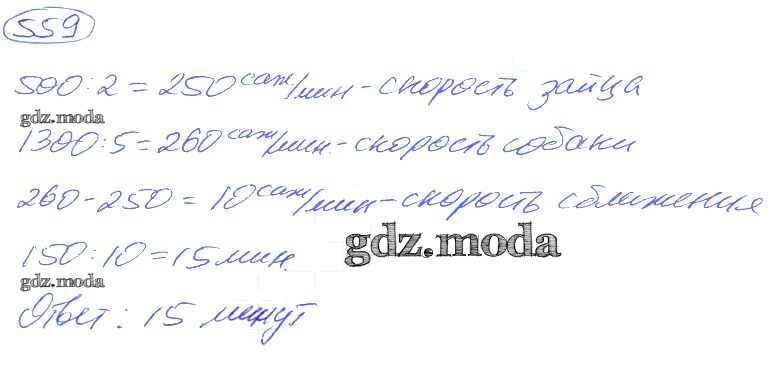 559
500 : 2 = 250 саж/мин - скорость зайца
gdz.moda
1300 : 5 = 260 саж/мин. - скорость собаки
260 - 250 = 10 саж/мин - скорость сближения
150 : 10 = 15 мин.
gdz.moda
gdz.moda
Ответ: 15 минут